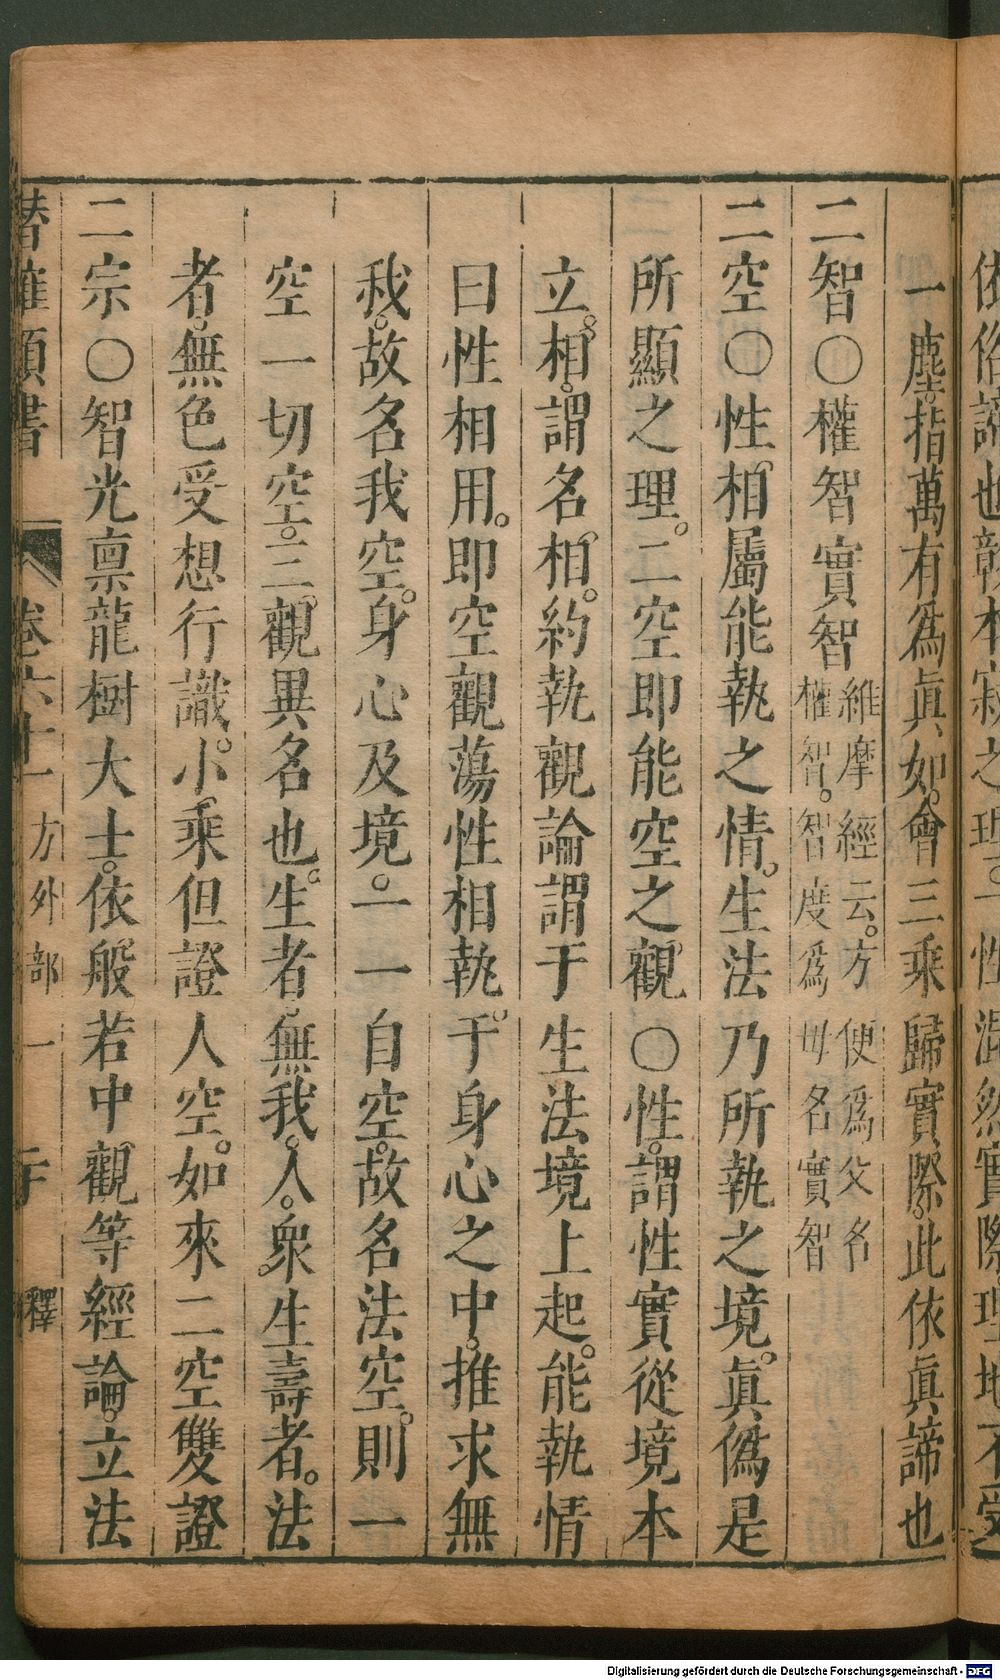 一塵指萬有爲眞如會三乘歸實際此依眞諦也
二智〇權智實智維摩經云方便爲父名權智智度爲母名實智
二空〇性相屬能執之情生法乃所執之境眞僞是
所顯之理二空即能空之觀〇性謂性實從境本
立相謂名相約執觀論謂于生法境上起能執情
曰性相用即空觀蕩性相執于身心之中推求無
我故名我空身心及境一一自空故名法空則一
空一切空三觀異名也生者無我人衆生壽者法
者無色受想行識小乘但證人空如來二空雙證
二宗〇智光禀龍樹大士依般若中觀等經論立法
卷六十一 方外部一 釋
Digitalisierung gefördert durch die Deutsche Forschungsgemeinschaft - DFG